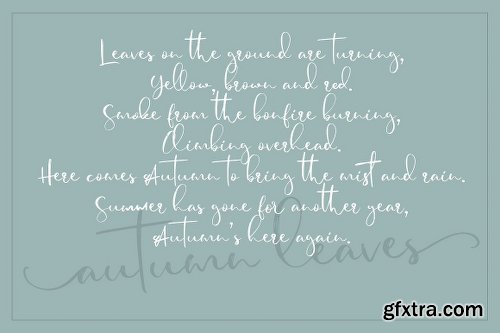 Leaves on the ground are turning,
Yellow, brown and red.
Smoke from the bonfire burning,
Climbing overhead.
Here comes Autumn to bring the mist and rain.
Summer has gone for another year,
Autumn's here again.
autumn leaves
gfxtra.com